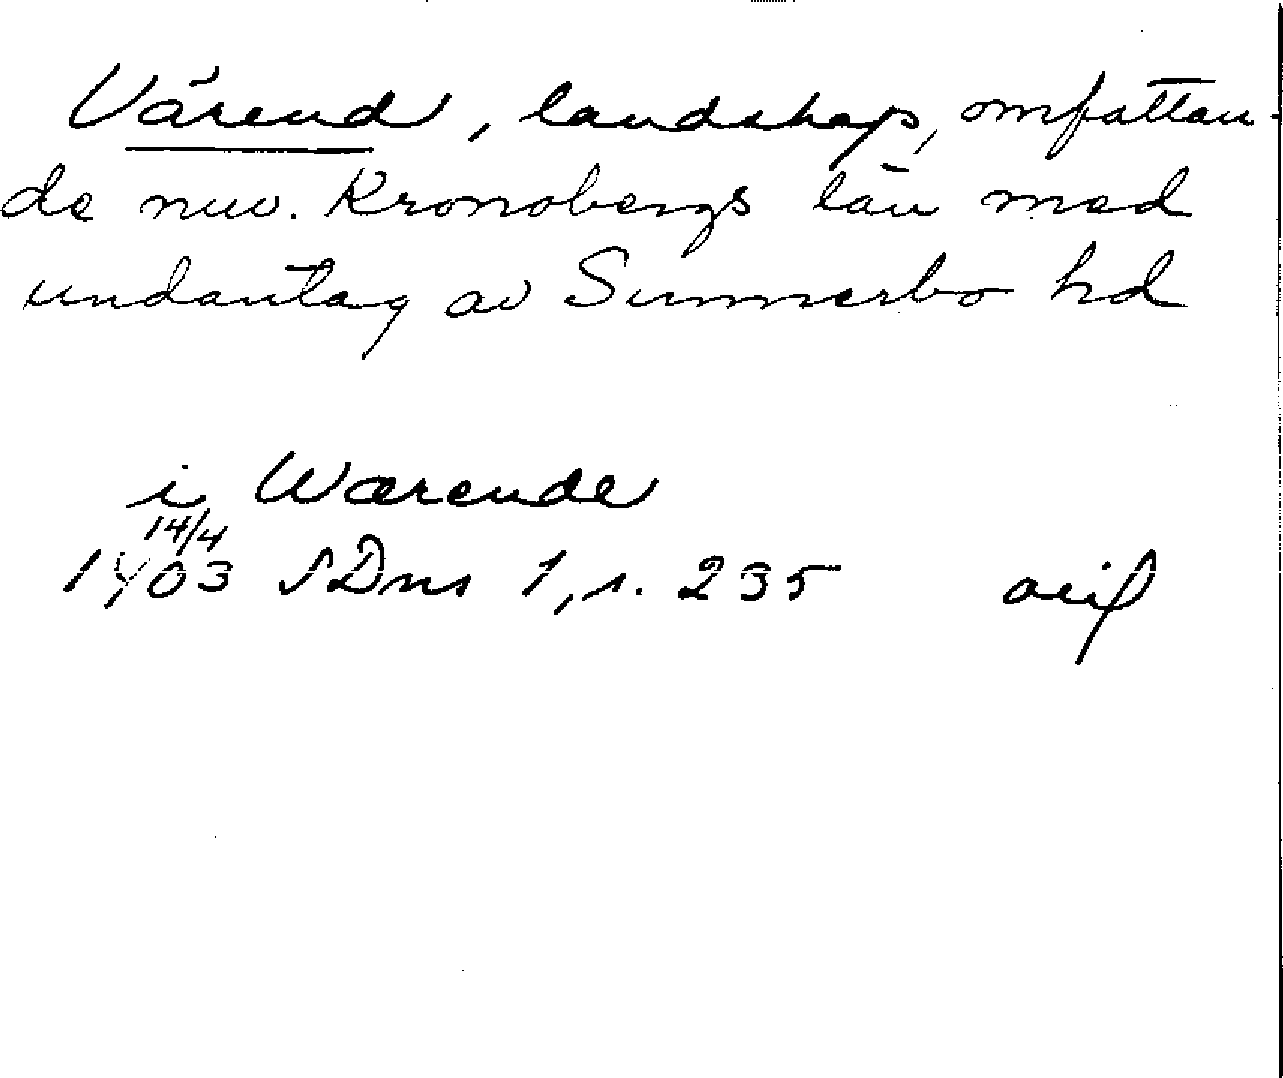 Värend, landskap, omfattan-
de nuv. Kronobergs län med
undantag av Sunnerbo hd
i Wærende
14/4
1403 SDns 1, s. 235 avs